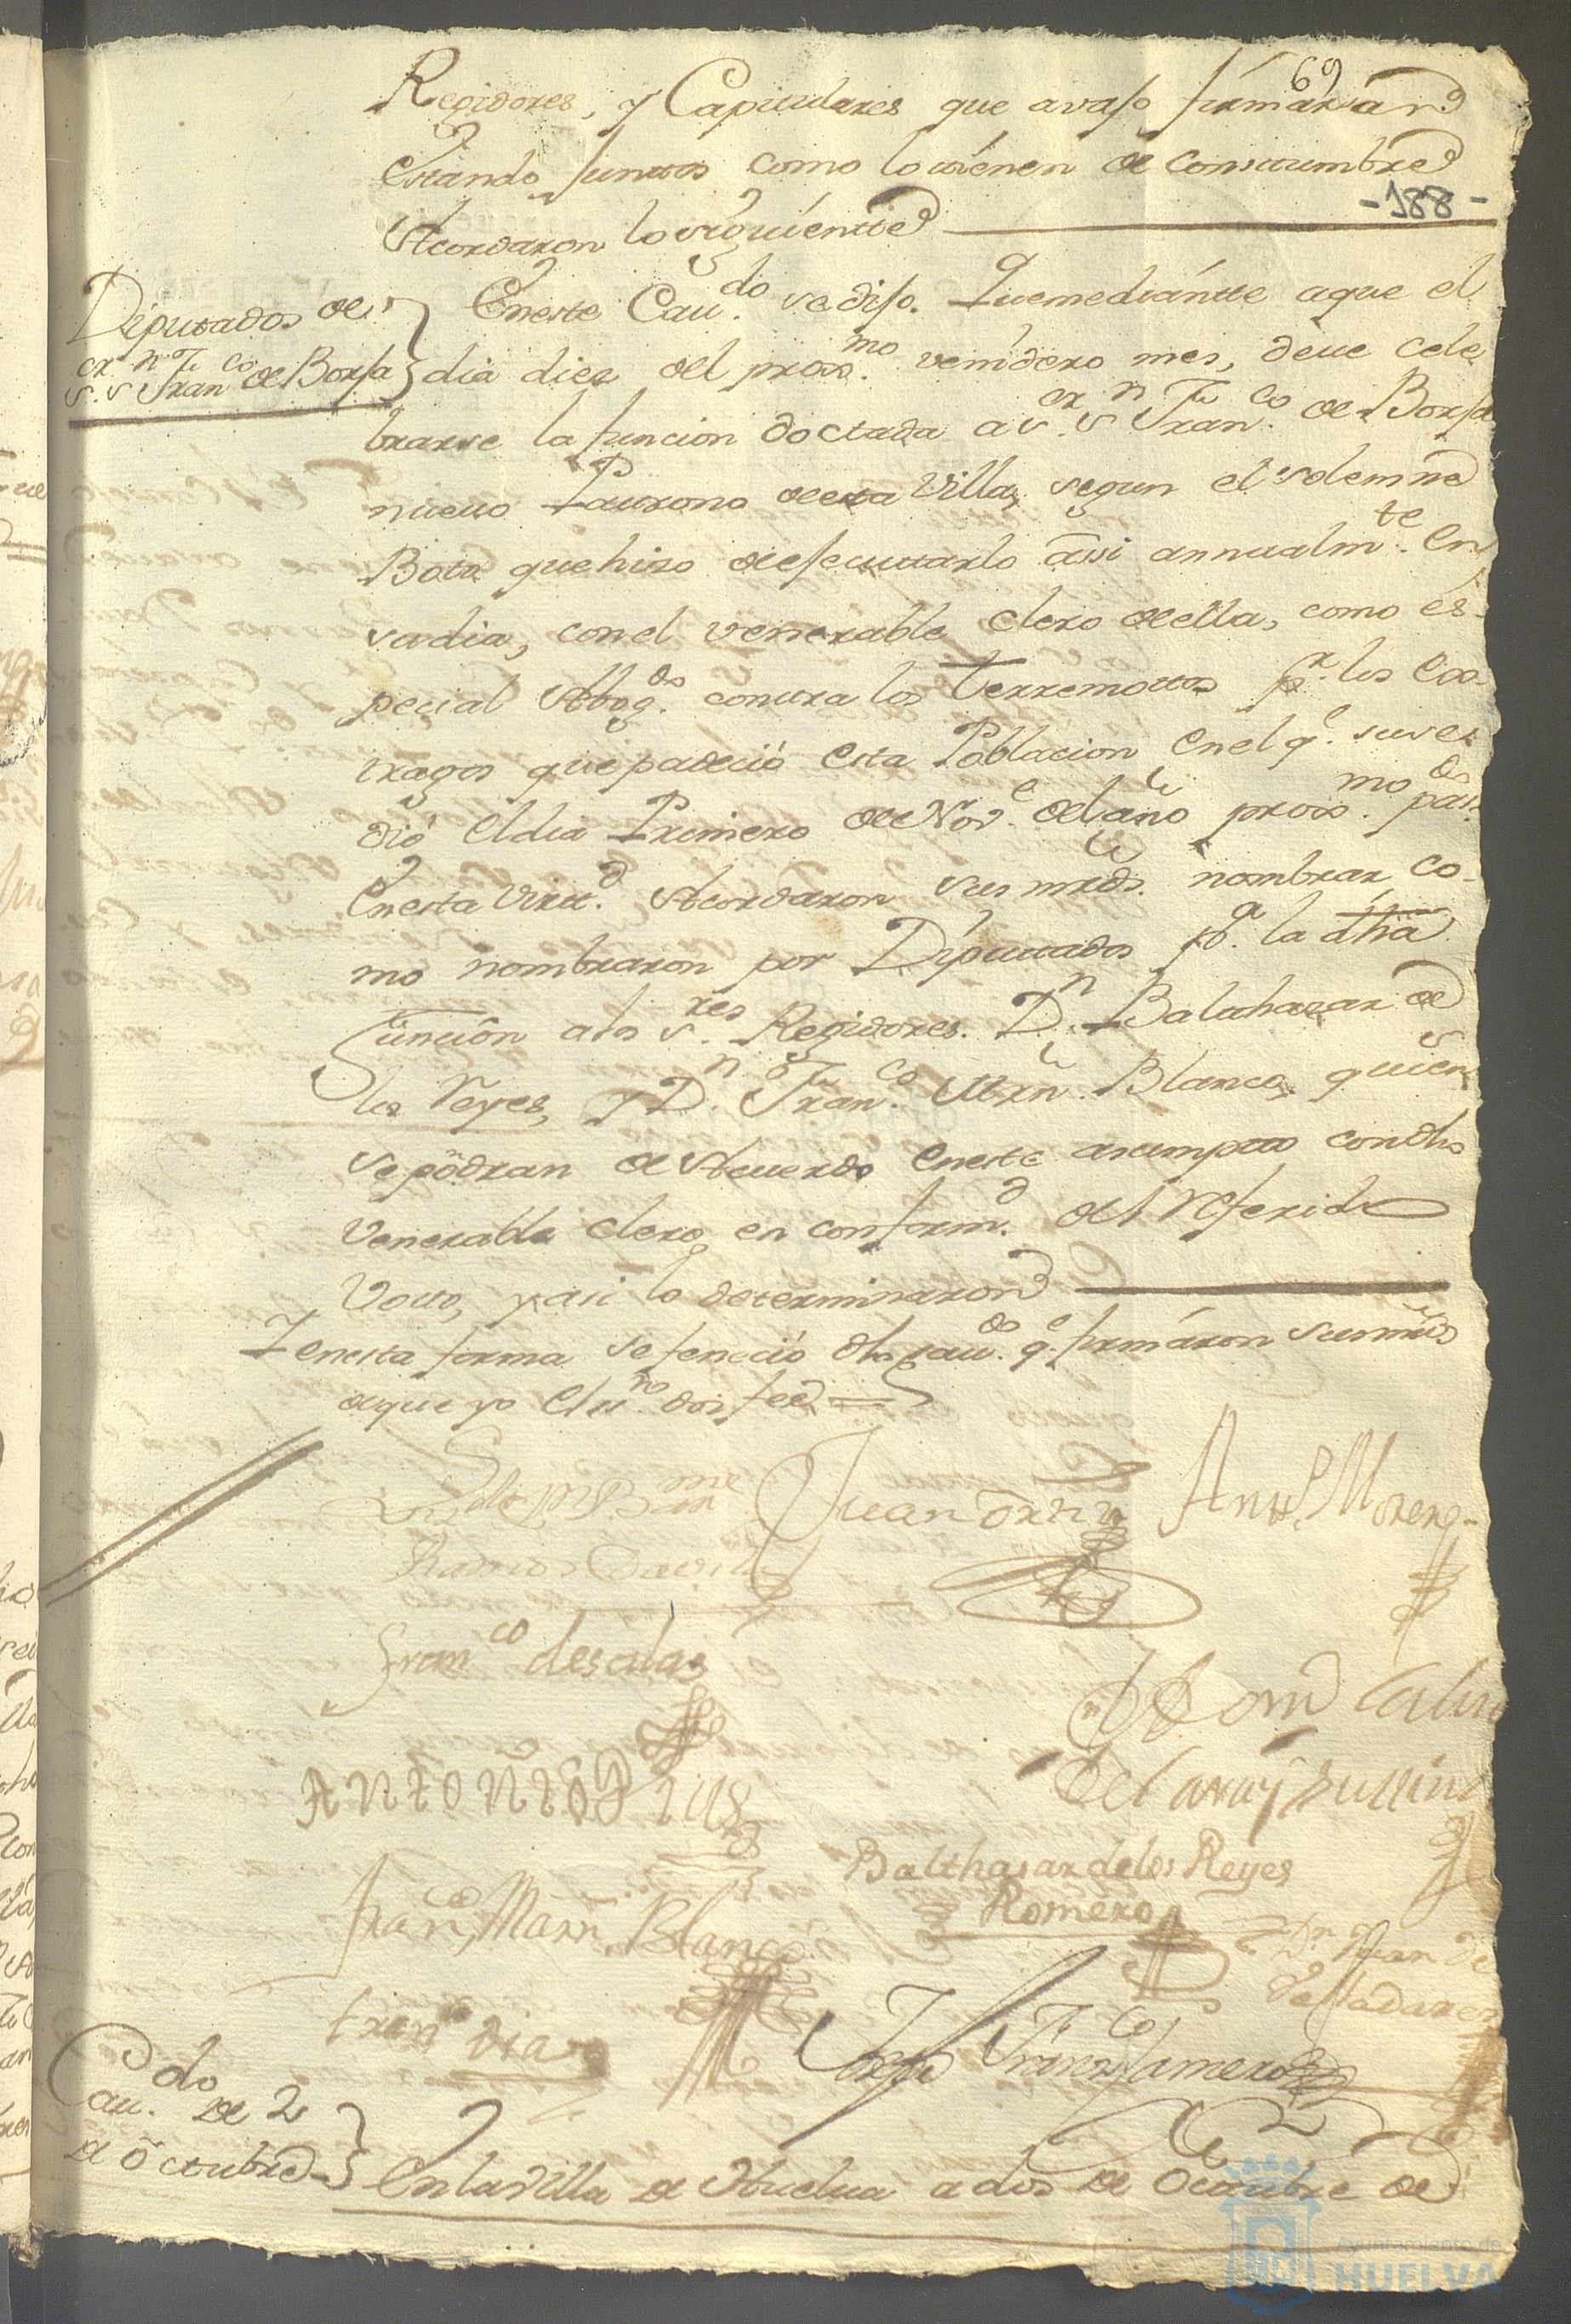 69
Regidores, y Capitulares que avajo firmarán
Estando juntos como lo tienen de Constumbre
-188-
Acordaron lo siguiente
Diputados de
Sr. Sn Franco de Borja
Eneste Cavdo. se dijo. Que mediantte aque el
dia diez del proxmo. venidero mes, deve cele
brarse la funcion doctada a Sr. Sn Franco. de Borja
nuevo Pattrono deesta Villa, segun el solemne
Boto que hizo deejecuttarlo assi annualmte. en
su dia, con el venerable Clero de ella, como es-
pecial Abogdo. contra los terremottos pr. los Es-
tragos que padeció esta Poblacion en el qe. suce
dió el dia Primero de Nove. del año proxmo. pasdo.
Enesta virtd. Acordaron sus mrds. nombrar co-
mo nombraron por Diputtados pa. la dha
función alos Sres Regidores. Dn. Balthazar de
los Reyes, y Dn. Franco. Mrn. Blanco, quien
se pōdran de Acuerdo eneste asumpto con dho
Venerable Clero en conformd. del Referido
Votto, y asi lo determinaron
Y enesta forma se feneció dho Cavdo. qe. firmáron sus mrds
de que yo el essno. doi fee
Juan Ortiz
Anto. Moreno
Ramos Davila
Franco de salas
Del Garay
Balthasar delos Reyes
Romero
Franco, Marn. Blanco
Dn Juan de
Valladares
Franco Diaz
Cavdo. de 2
de Octubre
En la Villa de Huelva a dos de Octubre de
Ayuntamiento de
HUELVA